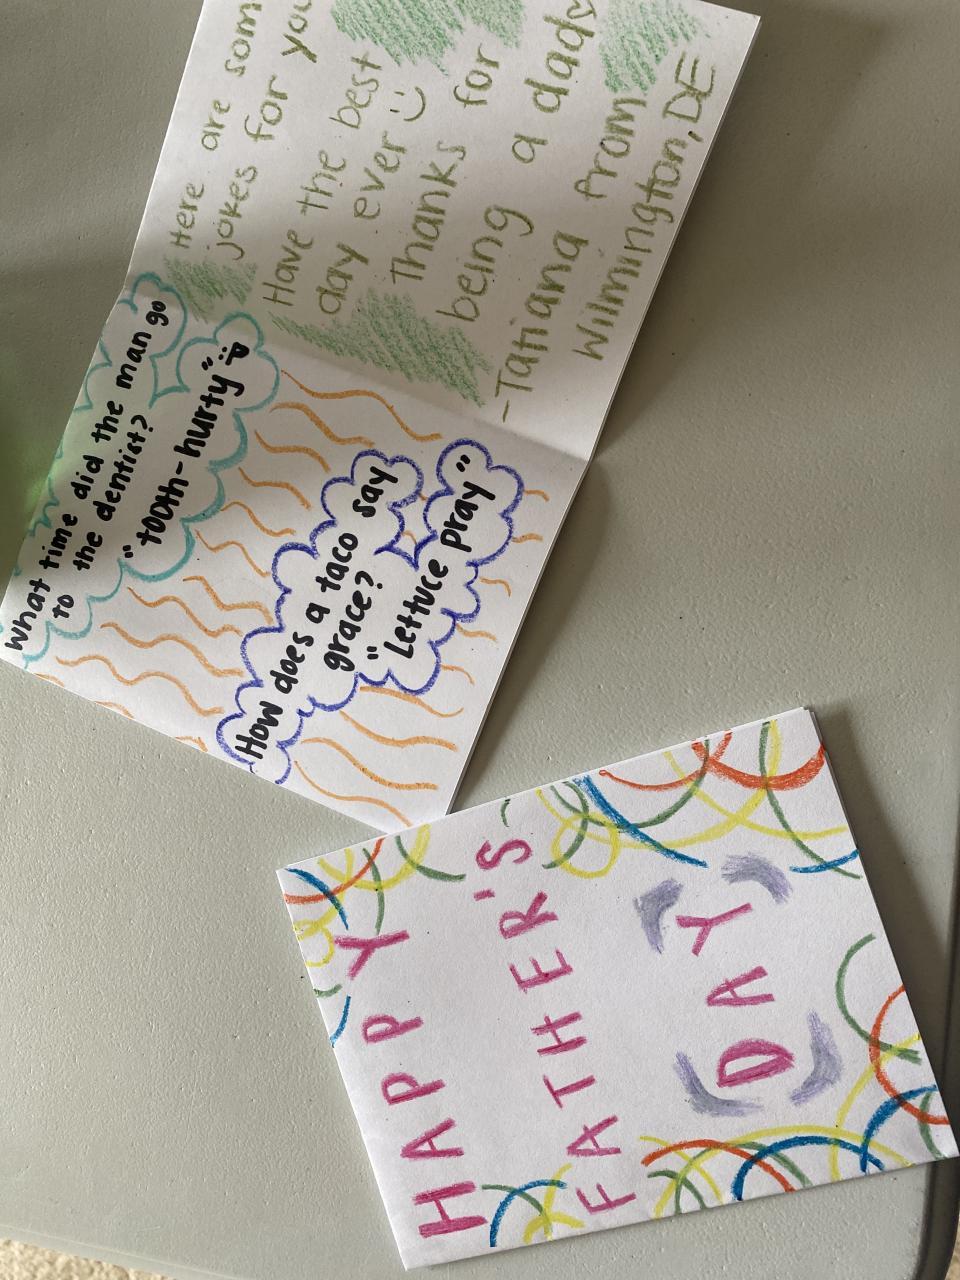 What time did the man go
to the dentist?
"tooth-hurty"
How does a taco say
grace?
"Lettuce pray"
Here are som
jokes for you
Have the best
day ever :)
Thanks for
being a dad♡
-Tatiana from
Wilmington, DE
HAPPY
FATHER'S
DAY